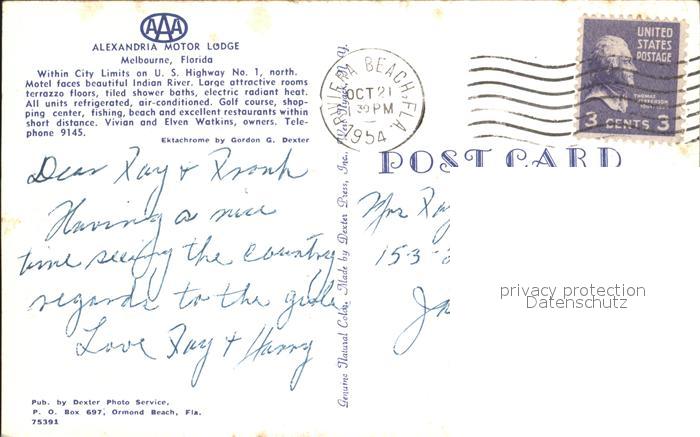 AAA
ALEXANDRIA MOTOR LODGE
Melbourne, Florida
Within City Limits on U. S. Highway No. 1, north.
Motel faces beautiful Indian River. Large attractive rooms
terrazzo floors, tiled shower baths, electric radiant heat.
All units refrigerated, air-conditioned. Golf course, shop-
ping center, fishing, beach and excellent restaurants within
short distance. Vivian and Elven Watkins, owners. Tele-
phone 9145.
Ektachrome by Gordon G. Dexter
Dear Fay + Frank
Having a nice
time seeing the country
regards to the girls
Love Fay + Harry
Pub. by Dexter Photo Service,
P. O. Box 697, Ormond Beach, Fla.
75391
Genuine Natural Color. Made by Dexter Press, Inc., West Nyack, N. Y.
RIVIERA BEACH, FLA.
OCT 21
30 PM
1954
UNITED
STATES
POSTAGE
THOMAS
JEFFERSON
3 CENTS 3
POST CARD
Mrs Fay
153-
Ja
privacy protection
Datenschutz